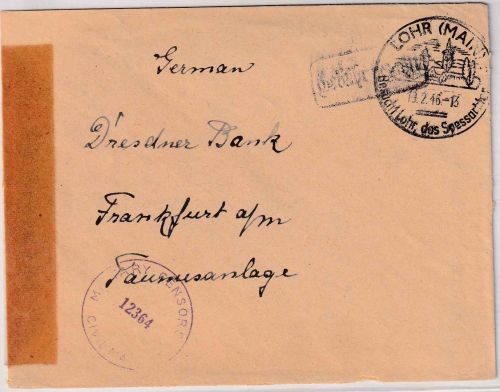 German
LOHR (MAIN)
19.2.46-13
Besucht Lohr, das Spessarttor
Dresdner Bank
Frankfurt a/m
Taunusanlage
MILITARY CENSOR
12364
CIVIL M